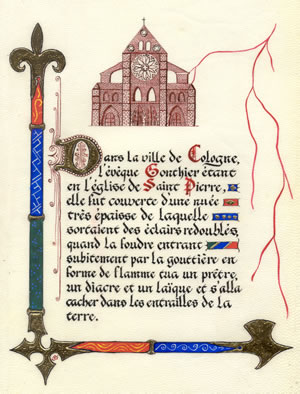 Dans la ville de Cologne,
l'évêque Gonthier étant
en l'église de Saint Pierre,
elle fut couverte d'une nuée
très épaisse de laquelle
sortaient des éclairs redoublés,
quand la foudre entrant
subitement par la gouttière en
forme de flamme tua un prêtre,
un diacre et un laïque et s'alla
cacher dans les entrailles de la
terre.